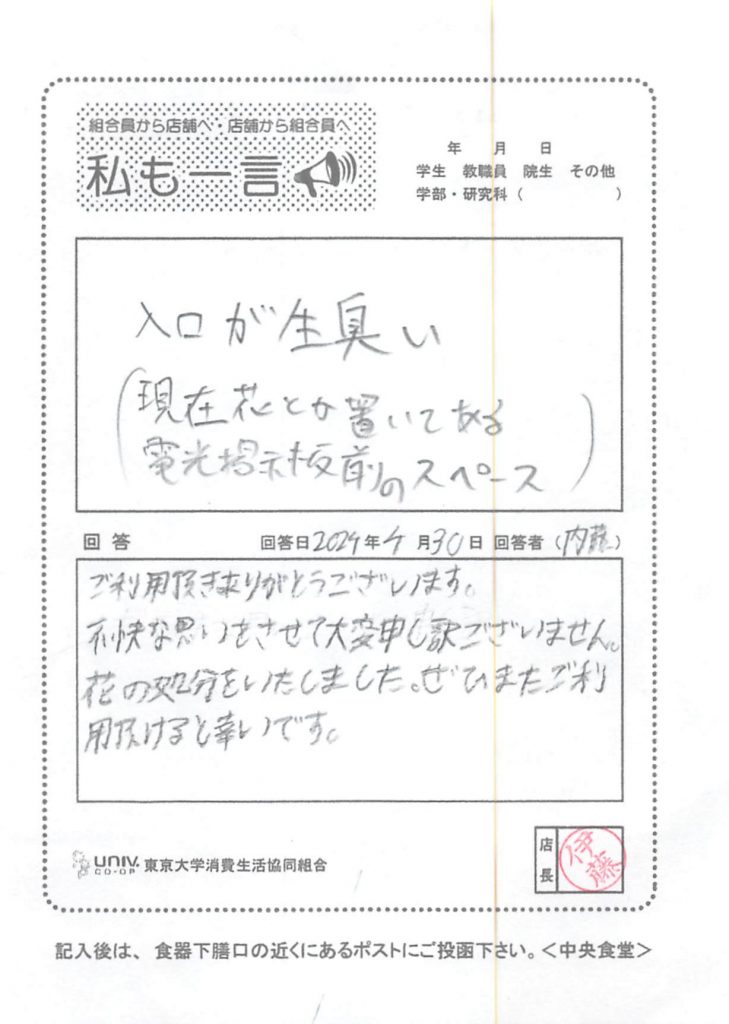 組合員から店舗へ・店舗から組合員へ
私も一言
年 月 日
学生 教職員 院生 その他
学部・研究科( )
入口が生臭い
(現在花とか置いてある
電光掲示板前のスペース)
回答 回答日2024年4月30日 回答者(内藤)
ご利用頂きありがとうございます。
不快な思いをさせて大変申し訳ございません。
花の処分をいたしました。ぜひまたご利
用頂けると幸いです。
UNIV. CO-OP 東京大学消費生活協同組合
店長 伊藤
記入後は、食器下膳口の近くにあるポストにご投函下さい。<中央食堂>